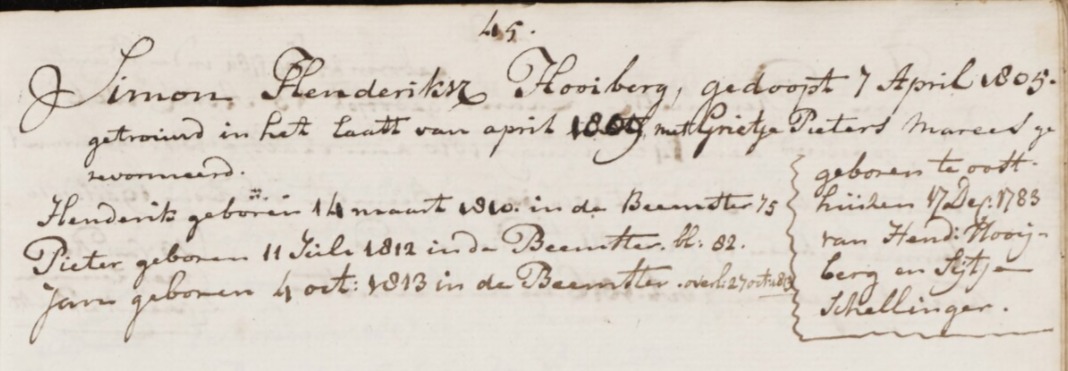 45.
Simon Henderiksz Hooiberg, gedoopt 7 April 1805.
getrouwd in het laatt van april met Grietje Pieters Marees ge
revormeerd.
Henderik geboren 14 maart 1810. in de Beemster 75
Pieter geboren 11 Julu 1812 in de Beemster. bl: 82.
Jan geboren 4 oct: 1813 in de Beemster. overl: 27 oct: 1813
geboren te oost-
huisen 17 Dec: 1783
van Hend: Hooij-
berg en Sijtje
Schellinger.